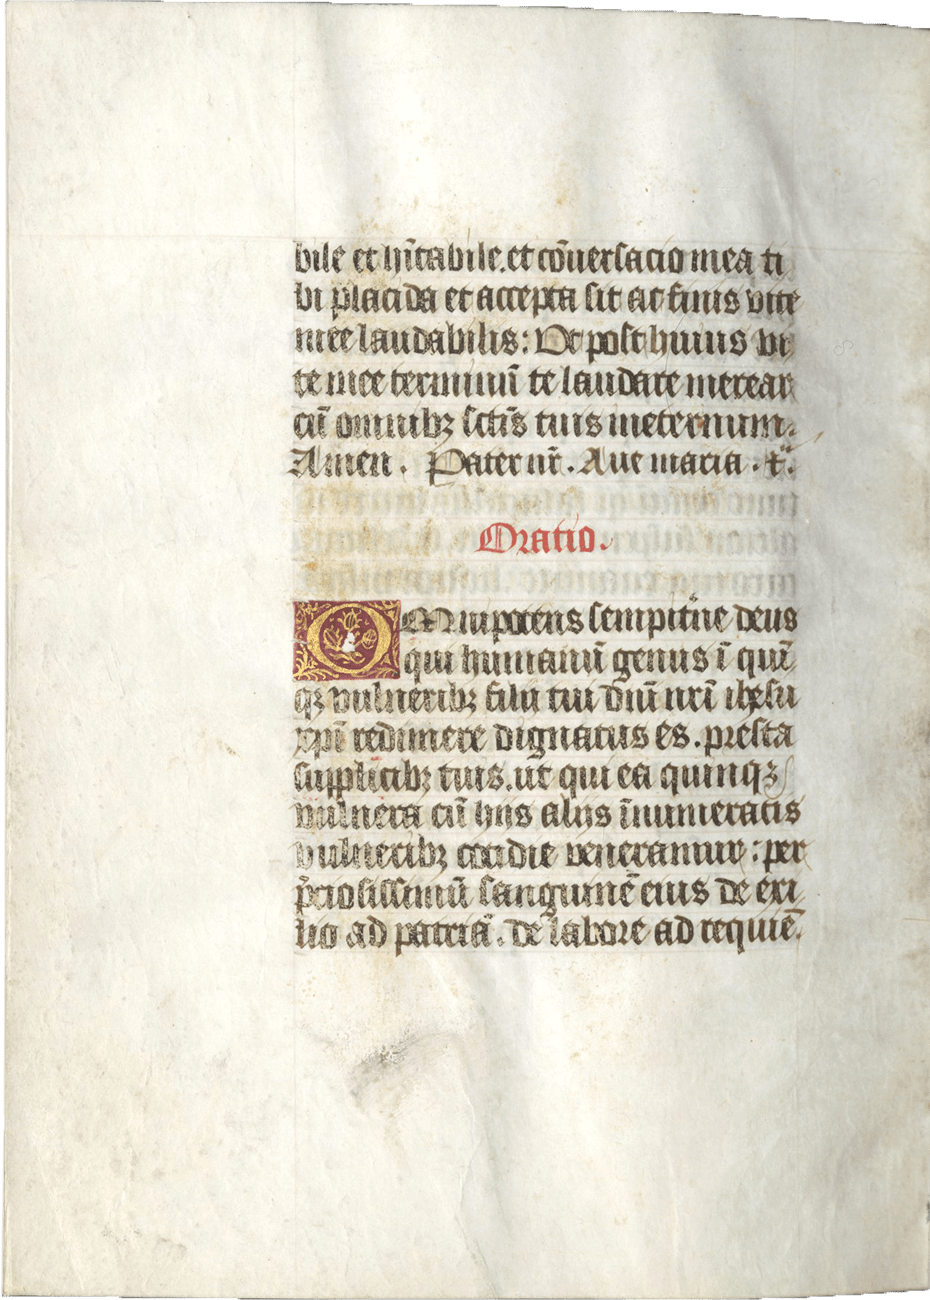 bile et hūtabile. et cōuersacio mea ti
bi placida et accepta sit ac finis vite
mee laudabilis: Vt post huius vi
te mee terminuū te laudare merear
cū omnibꝫ sctīs tuis ineternum.
Amen. Pater nr̄. Aue maria. ⁊c̄.
Oratio.
OMnipotens sempitne deus
qui humanū genus ī quī
qꝫ vulneribꝫ filii tui dn̄i nrī ihesu
xp̄i redimere dignatus es. presta
supplicibꝫ tuis. ut qui ea quinqꝫ
vulnera cū hijs alijs īnumeratis
vulneribꝫ cotidie veneramur: per
p̄ciosissimū sanguinē eius de exi
lio ad patriā. de labore ad requiē.